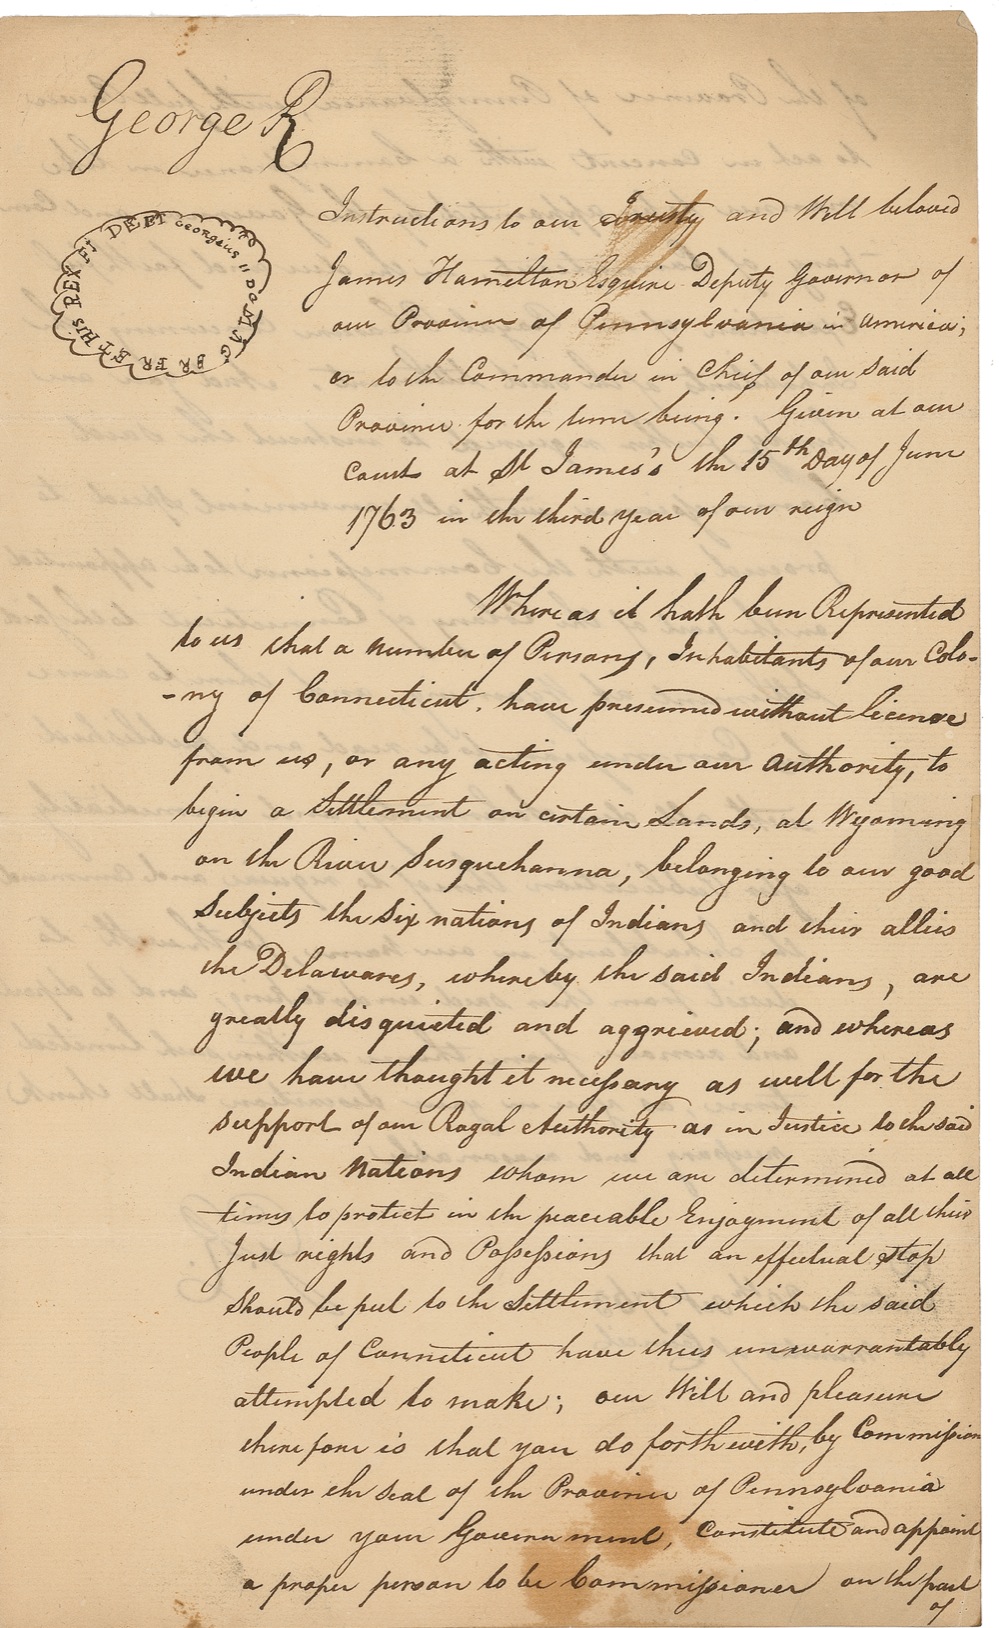 George R
GEORGIUS "D.G. MAG BR FR ET HIB REX ET DEF
Instructions to our Trusty and Well beloved
James Hamilton Esquire Deputy Governor of
our Province of Pennsylvania in America;
or to the Commander in Chief of our said
Province for the time being. Given at our
Court at St James's the 15th Day of June
1763 in the third year of our reign
Whereas it hath been Represented
to us that a number of Persons, Inhabitants of our Colo-
-ny of Connecticut. have presumed without licence
from us, or any acting under our Authority, to
begin a Settlement on certain Lands, at Wyoming
on the River Susquehanna, belonging to our good
Subjects the Six nations of Indians and their allies
the Delawares, whereby the said Indians, are
greatly disquieted and aggrieved; and whereas
we have thought it necessary as well for the
support of our Royal Authority as in Justice to the said
Indian Nations whom we are determined at all
times to protect in the peaceable Enjoyment of all their
Just rights and Possessions that an effectual stop
should be put to the Settlement which the said
People of Connecticut have thus unwarrantably
attempted to make; our Will and pleasure
therefore is that you do forthwith, by Commission
under the seal of the Province of Pennsylvania
under your Government, Constitute and appoint
a proper person to be Commissioner on the part
of